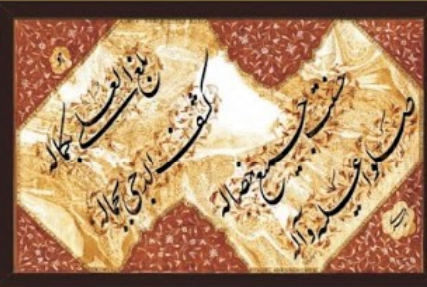 بلغ العلی بکماله
کشف الدجی بجماله
حسنت جمیع خصاله
صلوا علیه و آله